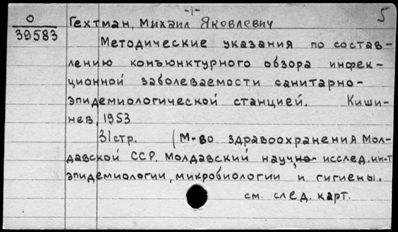 -1-
5
О
39583
Гехтман, Михаил Яковлевич
Методические указания по состав-
лению конъюнктурного обзора инфек-
ционной заболеваемости санитарно-
эпидемиологической станцией. Киши-
нев, 1953
31 стр. (М-во здравоохранения Мол-
давской ССР. Молдавский научно-исслед. ин-т
эпидемиологии, микробиологии и гигиены.
см. след. карт.